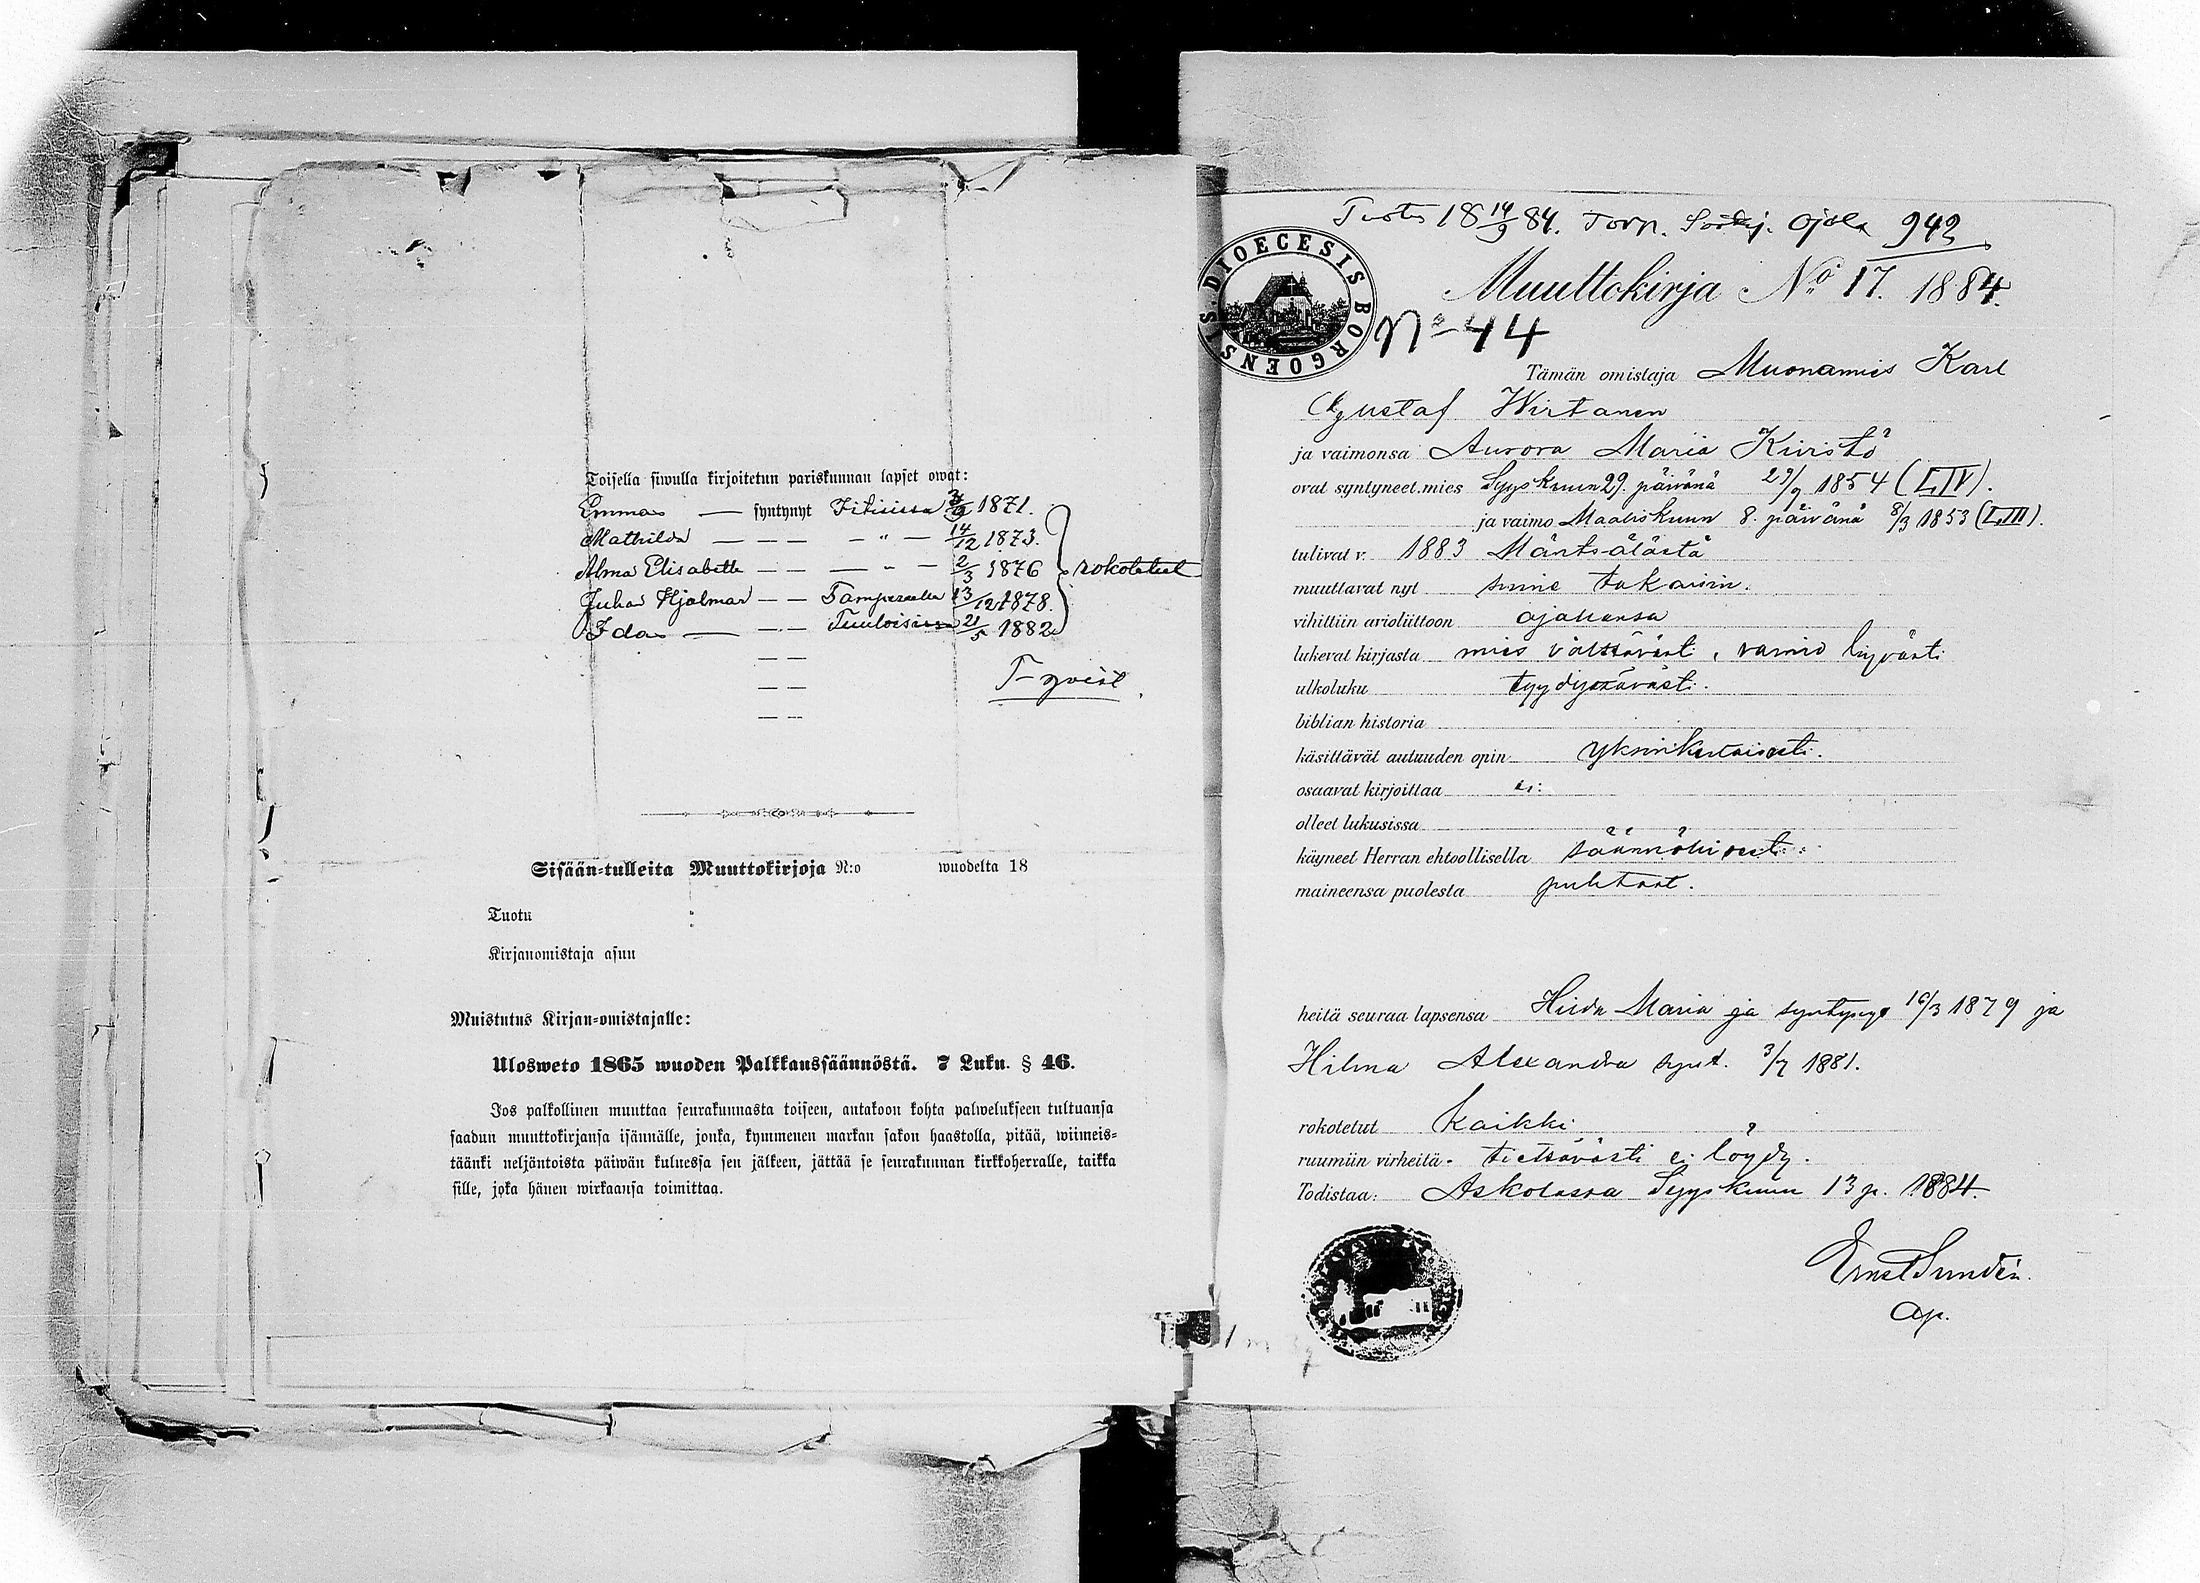 Toisella siwulla kirjoitetun pariskunnan lapset owat:
Emma — syntynyt Iitissä 1871.
Mathilda — — — — „ — 14/12 1873.
Alma Elisabeth — — — „ — 2/3 1876 rokotetut
Juha Hjalmar — — Tampereella 13/12 1878.
Ida — — — Tuuloisissa 21/5 1882
— —
— —
— —
Sisään-tulleita Muuttokirjoja N:o wuodelta 18
Tuotu
Kirjanomistaja asuu
Muistutus Kirjan-omistajalle:
Ulosweto 1865 wuoden Palkkaussäännöstä. 7 Luku. § 46.
Jos palkollinen muuttaa seurakunnasta toiseen, antakoon kohta palwelukseen tultuansa
saadun muuttokirjansa isännälle, jonka, kymmenen markan sakon haastolla, pitää, wiimeis-
täänki neljäntoista päiwän kuluessa sen jälkeen, jättää se seurakunnan kirkkoherralle, taikka
sille, joka hänen wirkaansa toimittaa.
18 14/9 84. Torp. Ojala 942
DIOECESIS BORGOENSIS
Muuttokirja No 17. 1884.
No 44
Tämän omistaja Muonamies Karl
Gustaf Wirtanen
ja vaimonsa Aurora Maria Kiiristö
ovat syntyneet, mies Syyskuun 29. päivänä 29/9 1854 (LIV).
ja vaimo Maaliskuun 8. päivänä 8/3 1853 (LIII).
tulivat v. 1883 Mäntsälästä
muuttavat nyt sinne takaisin.
vihittiin avioliittoon ajallansa
lukevat kirjasta mies välttävästi, vaimo hyvästi
ulkoluku tyydyttävästi.
biblian historia
käsittävät autuuden opin yksinkertaisesti.
osaavat kirjoittaa ei:
olleet lukusissa
käyneet Herran ehtoollisella säännöllisesti:
maineensa puolesta puhtaat.
heitä seuraa lapsensa Hilda Maria ja syntynyt 16/3 1879 ja
Hilma Alexandra synt. 3/7 1881.
rokotetut kaikki
ruumiin virheitä tiettävästi ei löydy.
Todistaa: Askolassa Syyskuun 13 p. 1884.
Ernst Sundén.
Ap.